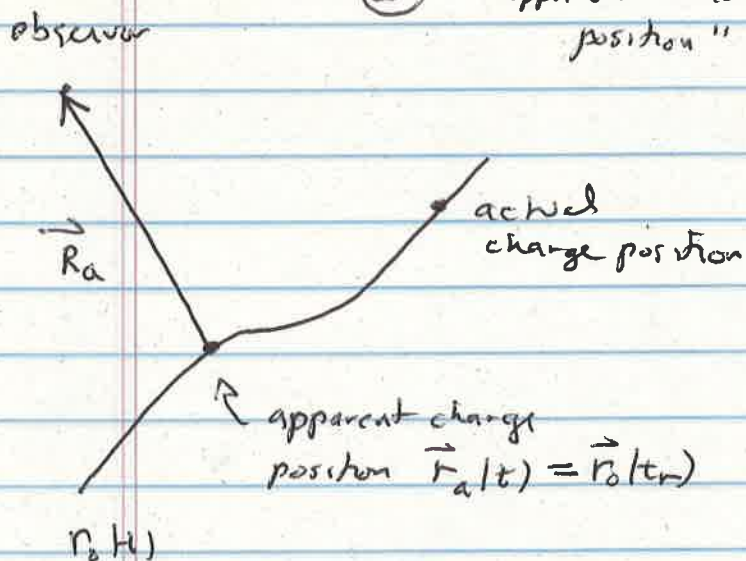 observer
position "
R⃗a
actual
charge position
apparent charge
position r⃗a(t) = r⃗o(tr)
ro(t)